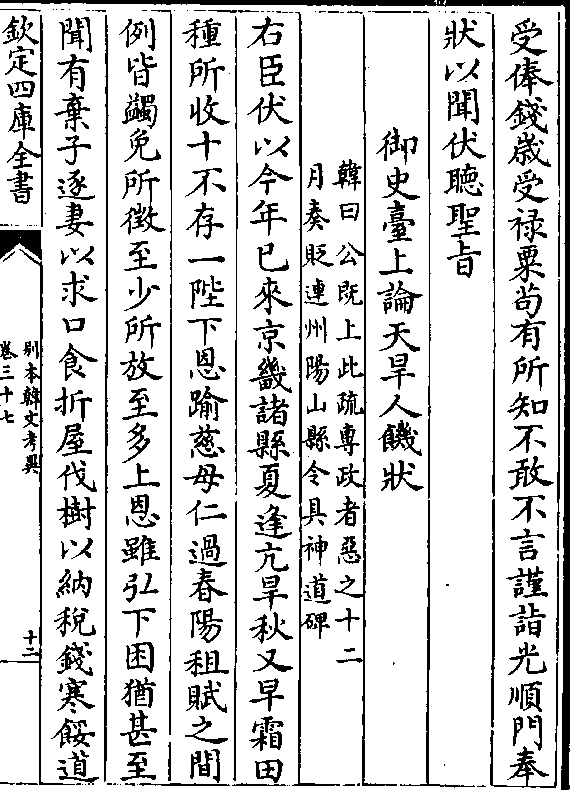 受俸錢歲受禄粟苟有所知不敢不言謹詣光順門奉
狀以聞伏聽聖旨
御史臺上論天旱人饑狀
韓曰公既上此疏專政者惡之十二
月奏貶連州陽山縣令具神道碑
右臣伏以今年已來京畿諸縣夏逢亢旱秋又早霜田
種所收十不存一陛下恩踰慈母仁過春陽租賦之間
例皆蠲免所徵至少所放至多上恩雖弘下困猶甚至
聞有棄子逐妻以求口食折屋伐樹以納稅錢寒餒道
欽定四庫全書
别本韓文考異
卷三十七
十二